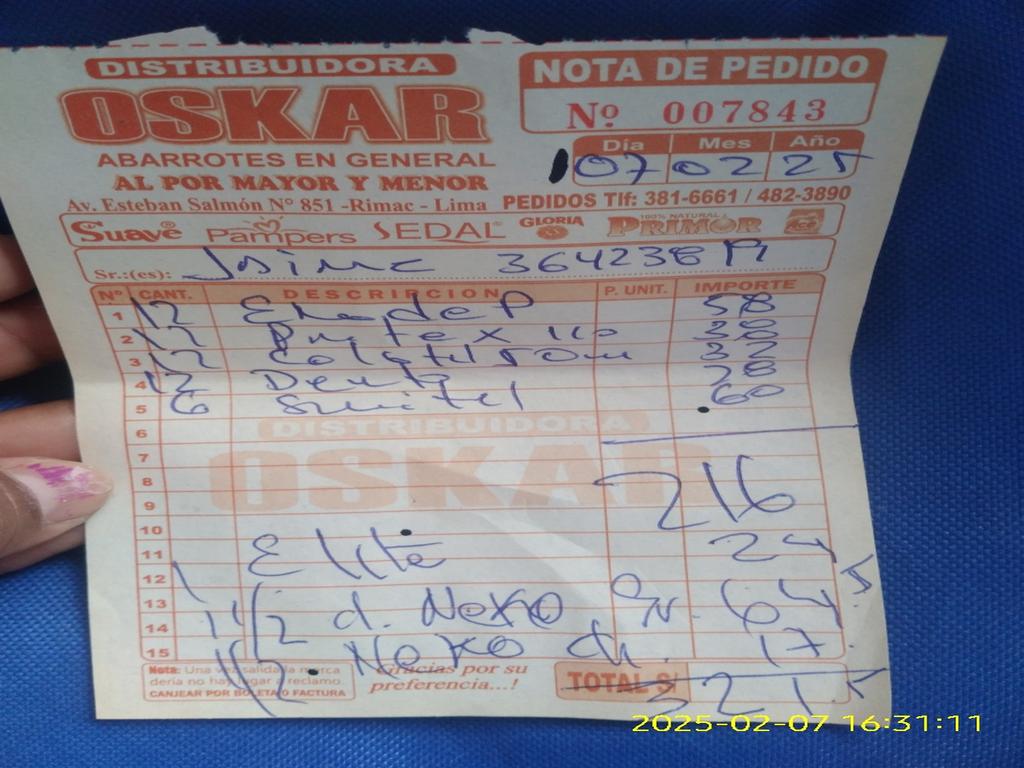 DISTRIBUIDORA
OSKAR
ABARROTES EN GENERAL
AL POR MAYOR Y MENOR
Av. Esteban Salmón Nº 851 -Rimac - Lima
NOTA DE PEDIDO
Nº 007843
Día Mes Año
07 02 25
PEDIDOS Tlf: 381-6661 / 482-3890
Suave Pampers SEDAL GLORIA 100% NATURAL PRIMOR
Sr.:(es): Jaime 364238
Nº CANT. DESCRIPCION P. UNIT. IMPORTE
1 12 58
2 12 110 38
3 12 32
4 12 28
5 6 60
6
DISTRIBUIDORA
7
OSKAR
8 216
9
10
11 Elite 24
12 1
13 1 1/2 d. Nexo Gr. 64
14
15 1/2 Noxo ch. 17
Nota: Una vez salida la marca
deria no hay lugar a reclamo.
CANJEAR POR BOLETA O FACTURA
Gracias por su
preferencia...!
TOTAL S/ 321
2025-02-07 16:31:11